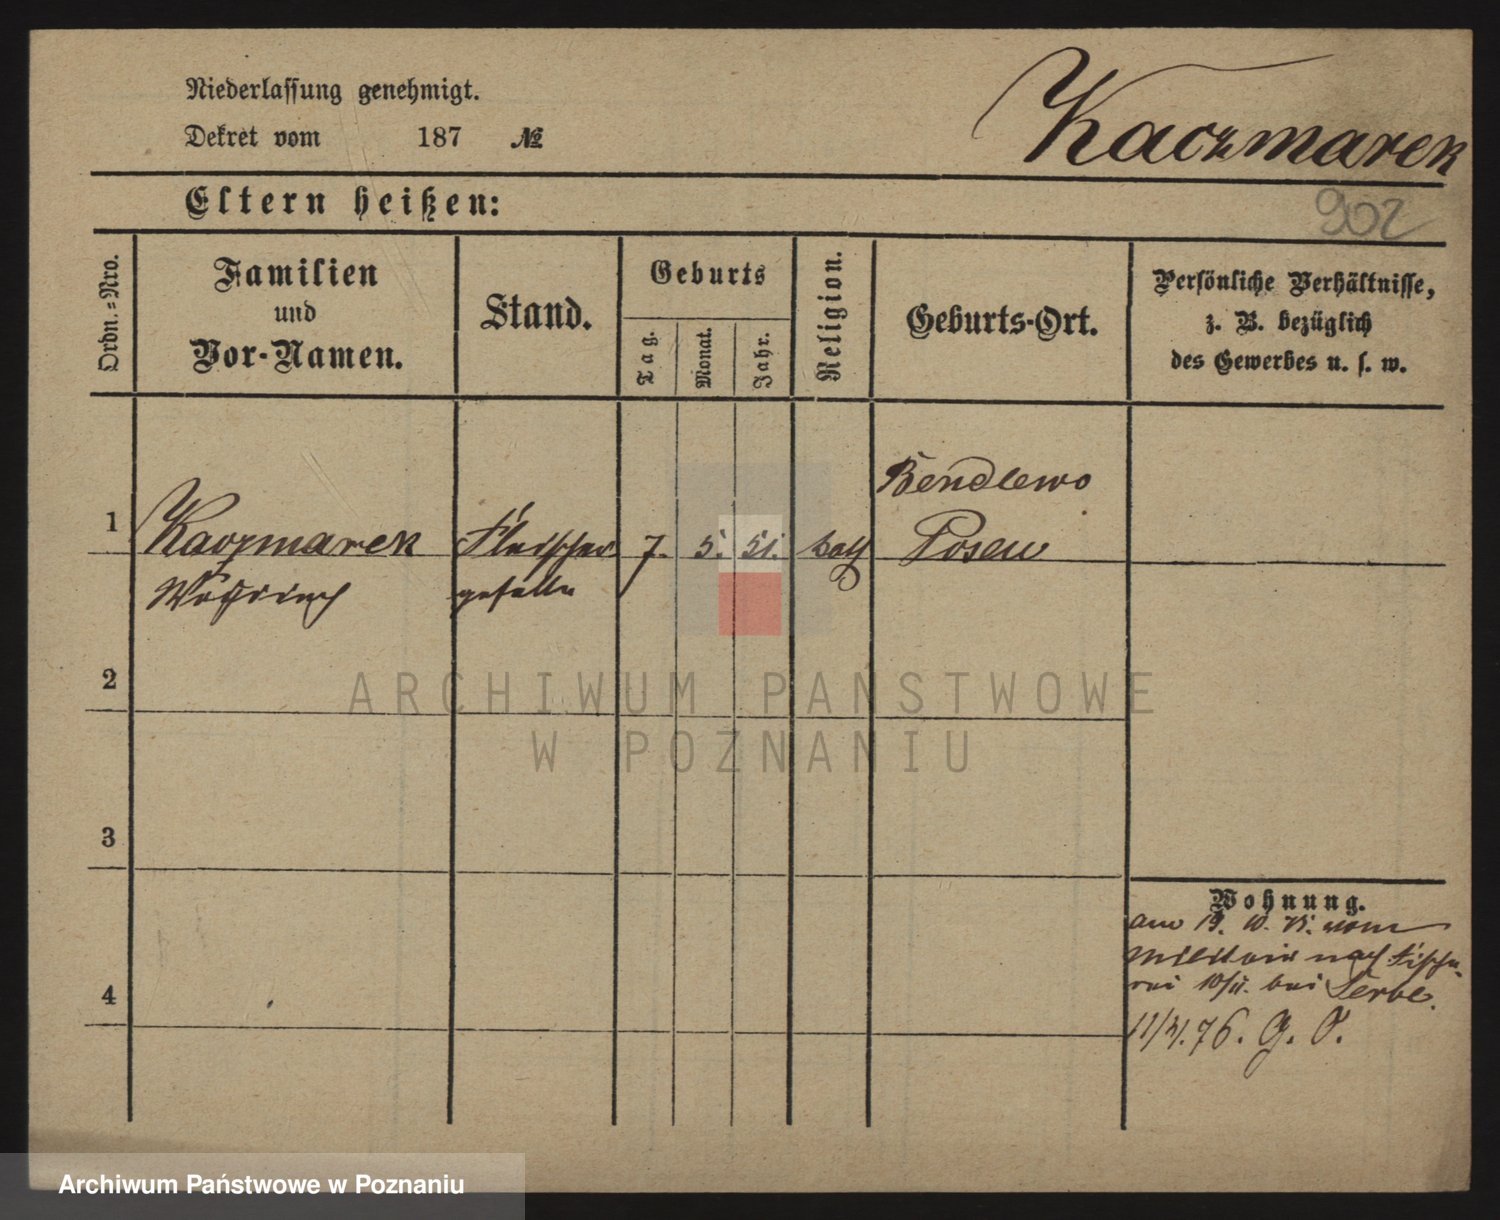 Niederlassung genehmigt.
Dekret vom 187 №
Kaczmarek
Eltern heißen:
902
Ordn.=Nro.
Familien
und
Vor-Namen.
Stand.
Geburts
Tag.
Monat.
Jahr.
Religion.
Geburts-Ort.
Persönliche Verhältnisse,
z. B. bezüglich
des Gewerbes u. s. w.
Bendlewo
1 Kaczmarek Fleischer 7. 5. 51. kath Posen
geselle
2
3
4
Wohnung.
am 19. 10. 75. vom
Militair nach Fische-
rei 10/11. bei
11/ 76. G. T.
ARCHIWUM PAŃSTWOWE
W POZNANIU
Archiwum Państwowe w Poznaniu